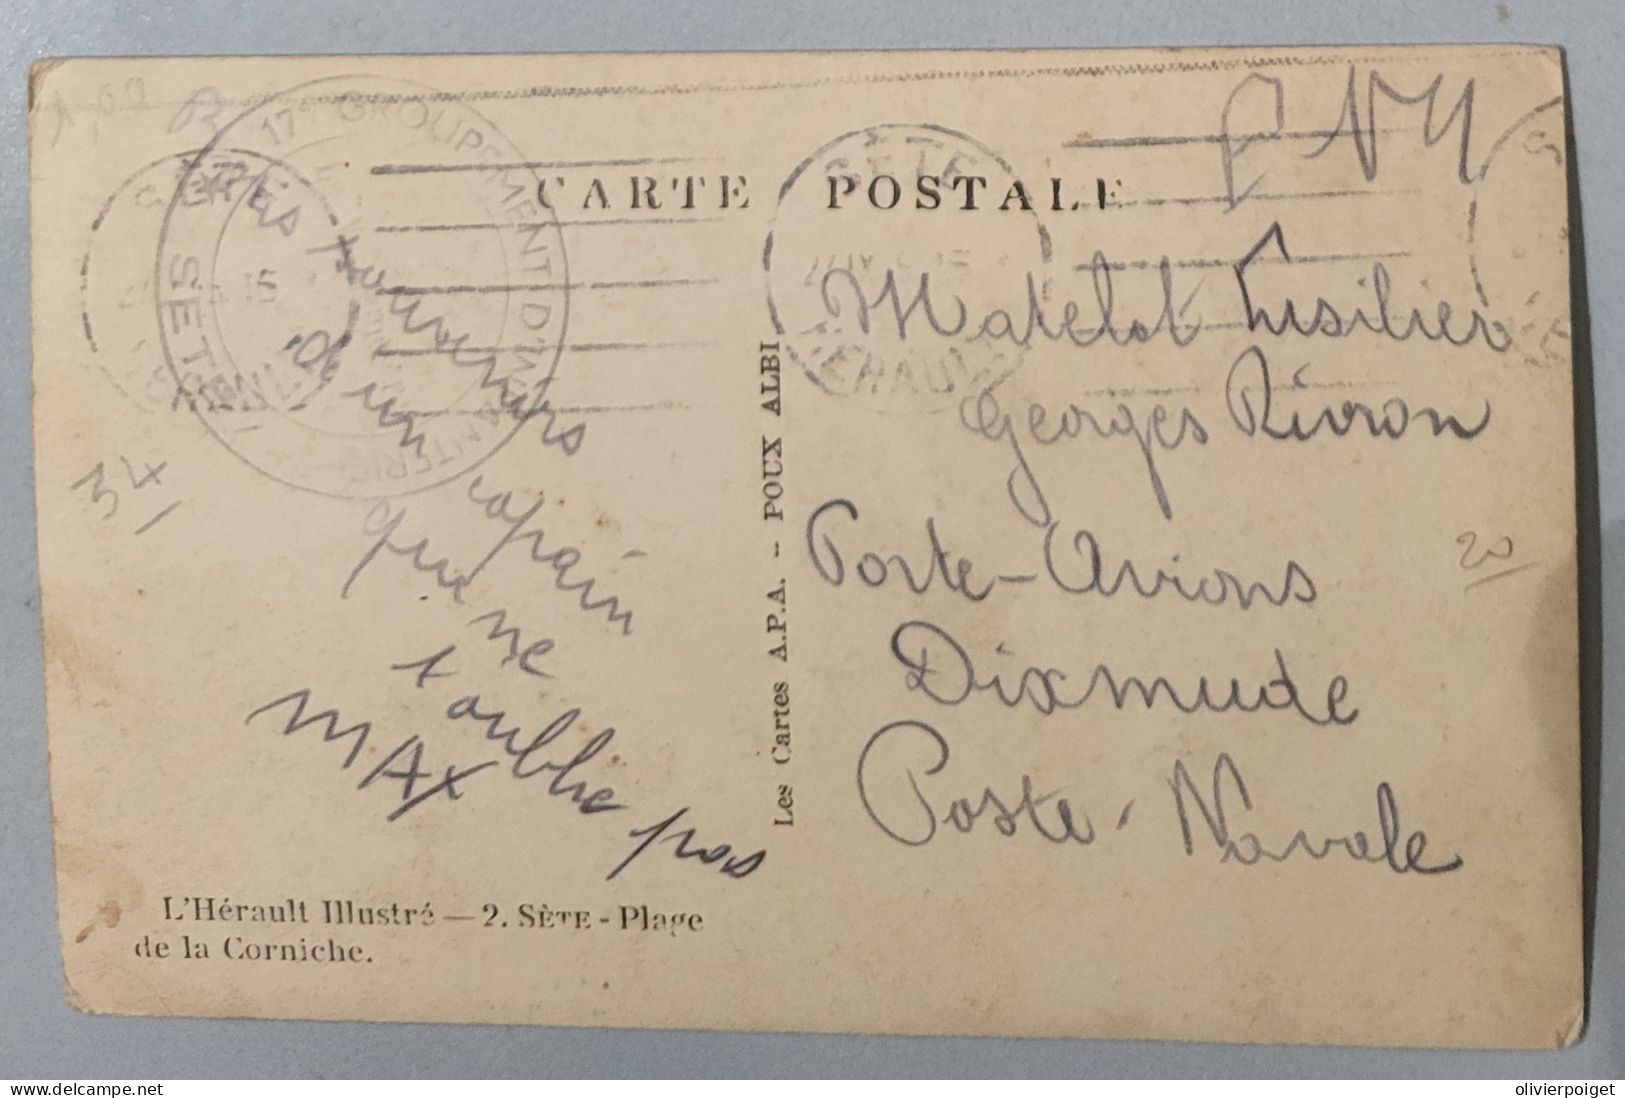 1,00
17e GROUPEMENT D'INFANTERIE
SÈTE
CARTE POSTALE
SÈTE
HÉRAULT
F M
souvenirs
d'un copain
qui ne
t oublie pas
MAX
34
Matelot Fusilier
Georges Rivron
Porte-Avions
Dixmude
Poste-Navale
20
Les Cartes A.P.A. -- POUX ALBI
L'Hérault Illustré — 2. SÈTE - Plage
de la Corniche.
olivierpoiget